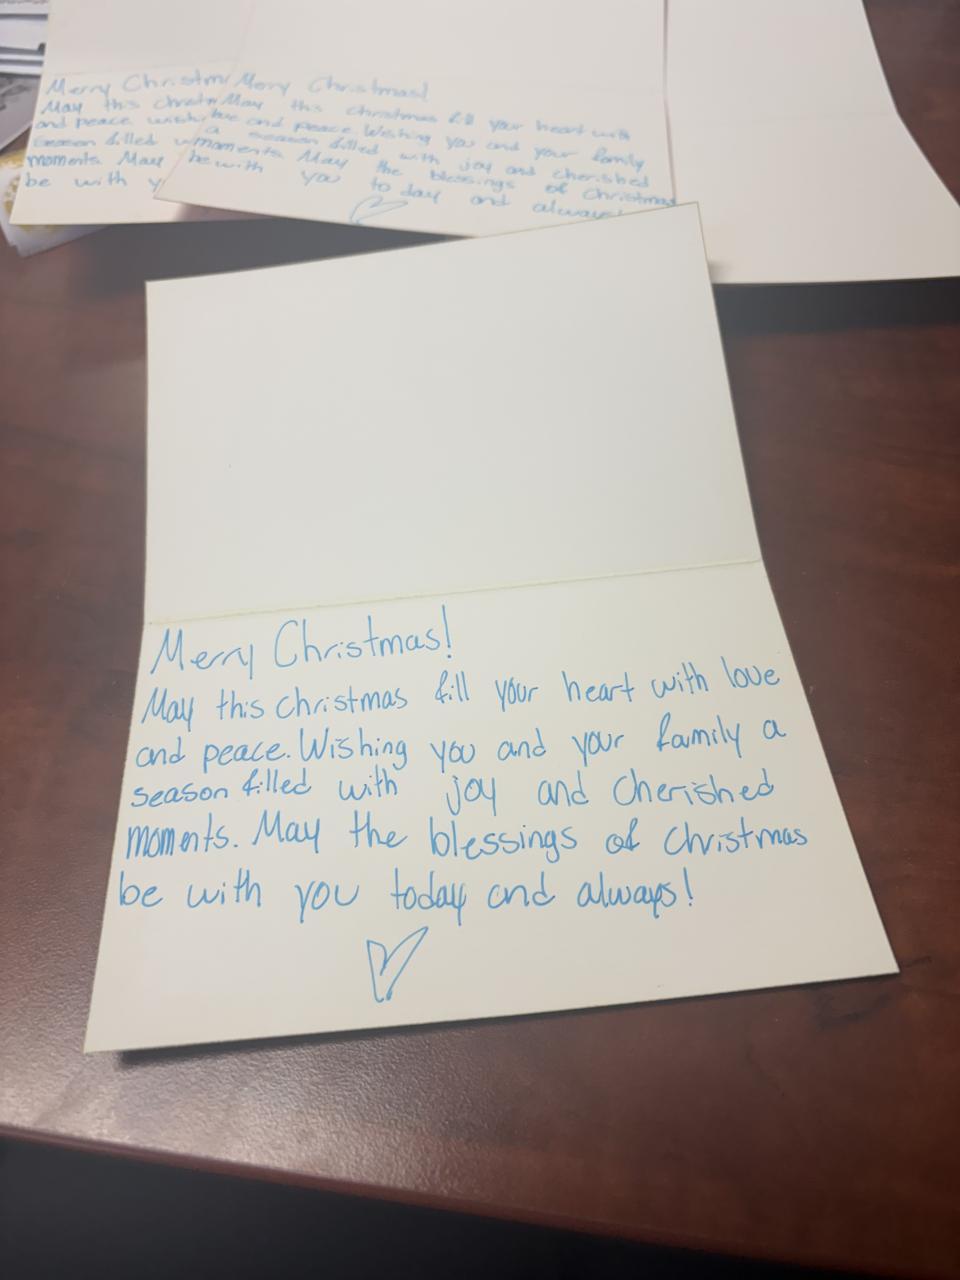 Merry Christm
May this christ
and peace. wish
season filled w
moments. May
be with y
Merry Christmas!
May this christmas fill your heart with
love and peace. Wishing you and your family
a season filled with joy and cherished
moments. May the blessings of christmas
be with you today and always!
Merry Christmas!
May this christmas fill your heart with love
and peace. Wishing you and your family a
season filled with joy and cherished
moments. May the blessings of christmas
be with you today and always!